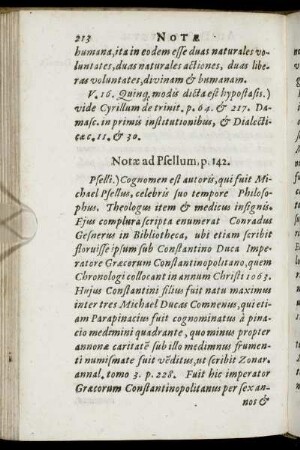 213 NOTÆ
humana, ita in eodem esse duas naturales vo-
luntates, duas naturales actiones, duas libe-
ras voluntates, divinam & humanam.
V. 16. Quinq, modis dicta est hypostasis.)
vide Cyrillum de trinit. p. 64. & 217. Da-
masc. in primis institutionibus, & Dialecti-
cæ c. 11. & 30.
Notæ ad Psellum, p. 142.
Pselli.) Cognomen est autoris, qui fuit Mi-
chael Psellus, celebris suo tempore Philoso-
phus. Theologus item & medicus insignis.
Ejus complura scripta enumerat Conradus
Gesnerus in Bibliotheca, ubi etiam scribit
floruisse ipsum sub Constantino Duca Impe-
ratore Græcorum Constantinopolitano, quem
Chronologi collocant in annum Christi 1063.
Hujus Constantini filius fuit natu maximus
inter tres Michael Ducas Comnenus, qui eti-
am Parapinacius fuit cognominatus à pina-
cio medimni quadrante, quo minus propter
annonæ caritatẽ sub illo medimnus frumen-
ti numismate fuit vẽditus, ut scribit Zonar.
annal. tomo 3. p. 228. Fuit hic imperator
Græcorum Constantinopolitanus per sex an-
nos &